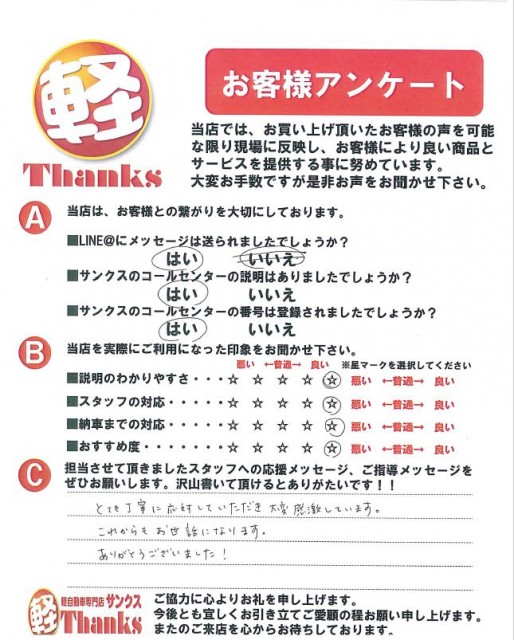 軽
Thanks
お客様アンケート
当店では、お買い上げ頂いたお客様の声を可能
な限り現場に反映し、お客様により良い商品と
サービスを提供する事に努めています。
大変お手数ですが是非お声をお聞かせ下さい。
A 当店は、お客様との繋がりを大切にしております。
■LINE@にメッセージは送られましたでしょうか?
はい いいえ
■サンクスのコールセンターの説明はありましたでしょうか?
はい いいえ
■サンクスのコールセンターの番号は登録されましたでしょうか?
はい いいえ
B 当店を実際にご利用になった印象をお聞かせ下さい。
悪い ←普通→ 良い ※星マークを選択してください
■説明のわかりやすさ・・・☆ ☆ ☆ ☆ ☆ 悪い ←普通→ 良い
■スタッフの対応・・・・・☆ ☆ ☆ ☆ ☆ 悪い ←普通→ 良い
■納車までの対応・・・・・☆ ☆ ☆ ☆ ☆ 悪い ←普通→ 良い
■おすすめ度・・・・・・・☆ ☆ ☆ ☆ ☆ 悪い ←普通→ 良い
C 担当させて頂きましたスタッフへの応援メッセージ、ご指導メッセージを
ぜひお願いします。沢山書いて頂けるとありがたいです!!
とても丁寧に応対していただき大変感激しています。
これからもお世話になります。
ありがとうございました!
軽 軽自動車専門店 サンクス
Thanks
ご協力に心よりお礼を申し上げます。
今後とも宜しくお引き立てご愛顧の程お願い申し上げます。
またのご来店を心からお待ちしております。